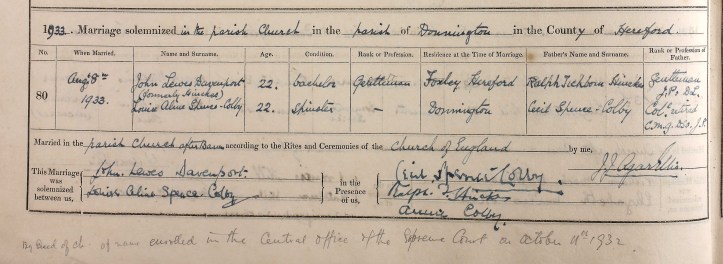 1933. Marriage solemnized in the parish Church in the parish of Donnington in the County of Hereford.
No. When Married. Name and Surname. Age. Condition. Rank or Profession. Residence at the Time of Marriage. Father's Name and Surname. Rank or Profession of Father.
80 Aug 8th 1933. John Lewes Davenport (formerly Hinckes) 22. bachelor Gentleman Foxley Hereford Ralph Tichborne Hinckes Gentleman J.P. D.L.
Louise Aline Spence-Colby 22. Spinster — Donnington Cecil Spence-Colby Col. retired C.M.G. DSO. J.P.
Married in the parish Church after Banns according to the Rites and Ceremonies of the Church of England by me,
This Marriage was solemnized between us,
John Lewes Davenport
Louise Aline Spence-Colby
In the Presence of us,
Cecil Spence Colby
Ralph T Hinckes
Colby
By Deed of enrolled in the Central office of the Supreme Court on October 11th 1932